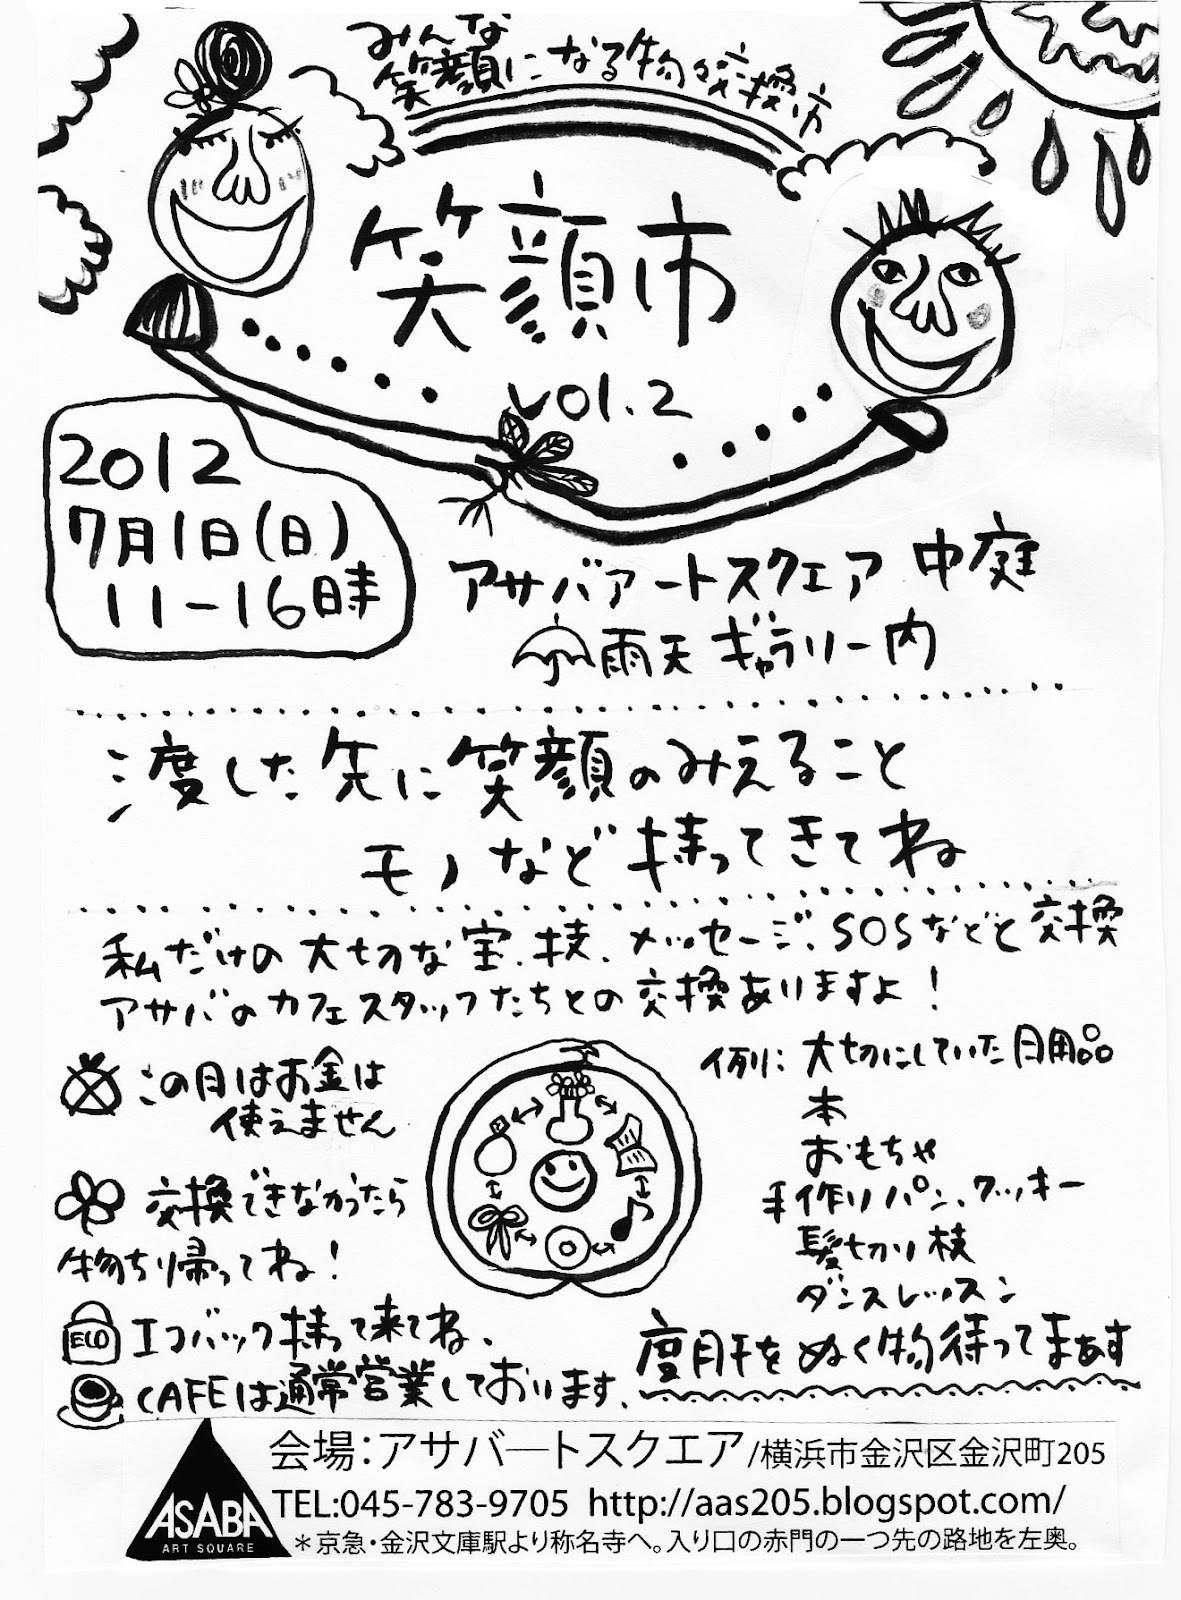 みんな
笑顔になる物々交換市
笑顔市
vol.2
2012
7月1日(日)
11-16時
アサバアートスクエア 中庭
雨天 ギャラリー内
渡した先に笑顔のみえること
モノなど持ってきてね
私だけの大切な宝、技、メッセージ、SOSなどと交換
アサバのカフェスタッフたちとの交換あります よ!
この日はお金は
使えません
交換できなかったら
物もち帰ってね!
ECO
エコバック持って来てね、
CAFEは通常営業しております、
例: 大切にしていた日用品
本
おもちゃ
手作りパン、クッキー
髪切り枝
ダンスレッスン
度肝をぬく物待ってまぁす
会場:アサバートスクエア/横浜市金沢区金沢町205
TEL:045-783-9705 http://aas205.blogspot.com/
*京急・金沢文庫駅より称名寺へ。入り口の赤門の一つ先の路地を左奥。
ASABA
ART SQUARE